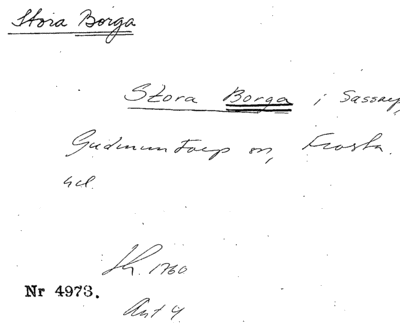 Stora Borga
Stora Borga i Sassarp
Gudmuntorp sn, Frosta
hd.
1760
Nr 4973.
Ant 4